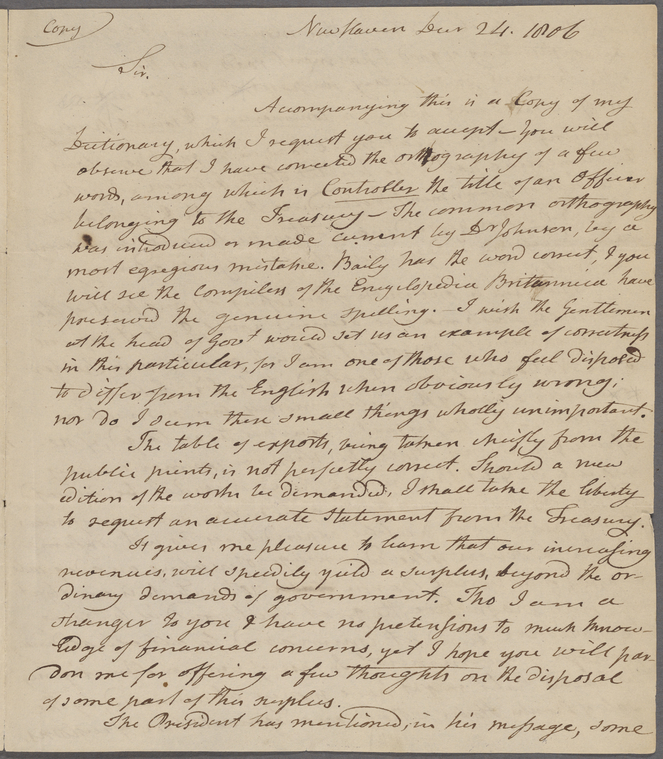 Copy
New Haven Decr 24. 1806
Sir.
Accompanying this is a Copy of my
Dictionary, which I request you to accept - You will
observe that I have corrected the orthography of a few
words, among which is Controller the title of an Officer
belonging to the Treasury - The common orthography
was introduced or made current by Dr Johnson, by a
most egregious mistake. Baily has the word correct, & you
will see the Compilers of the Encyclopedia Britannica have
preserved the genuine spelling. - I wish the Gentlemen
at the head of Govt would set us an example of correctness
in this particular, for I am one of those who feel disposed
to differ from the English when obviously wrong;
nor do I deem these small things wholly unimportant.
The table of exports, being taken chiefly from the
public prints, is not perfectly correct. Should a new
edition of the works be demanded, I shall take the liberty
to request an accurate statement from the Treasury.
It gives me pleasure to learn that our increasing
revenues, will speedily yield a surplus, beyond the or-
dinary demands of government. Tho I am a
stranger to you & have no pretensions to much know-
ledge of financial concerns, yet I hope you will par-
don me for offering a few thoughts on the disposal
of some part of this surplus.
The President has mentioned, in his message, some